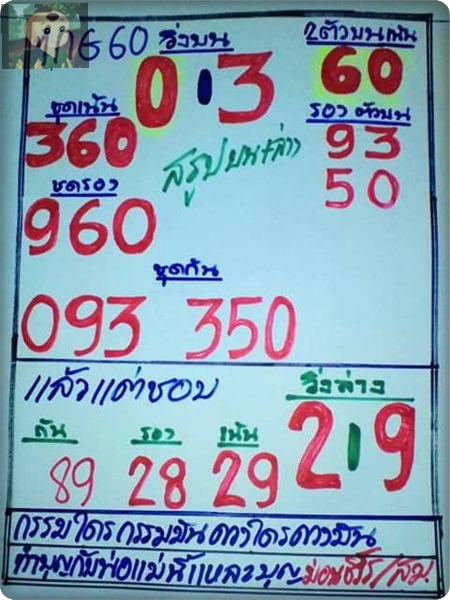 60 วิ่งบน 2ตัวบนเน้น
0 3 60
ชุดเน้น รองตัวบน
360 93
สรุปบน+ล่าง 50
ชุดรอง
960
ชุดกัน
093 350
แล้วแต่ชอบ วิ่งล่าง
กัน รอง เน้น 2 9
89 28 29
กรรมใครกรรมมันดวงใครดวงมัน
ทำบุญกับพ่อแม่นี้แหละบุญ